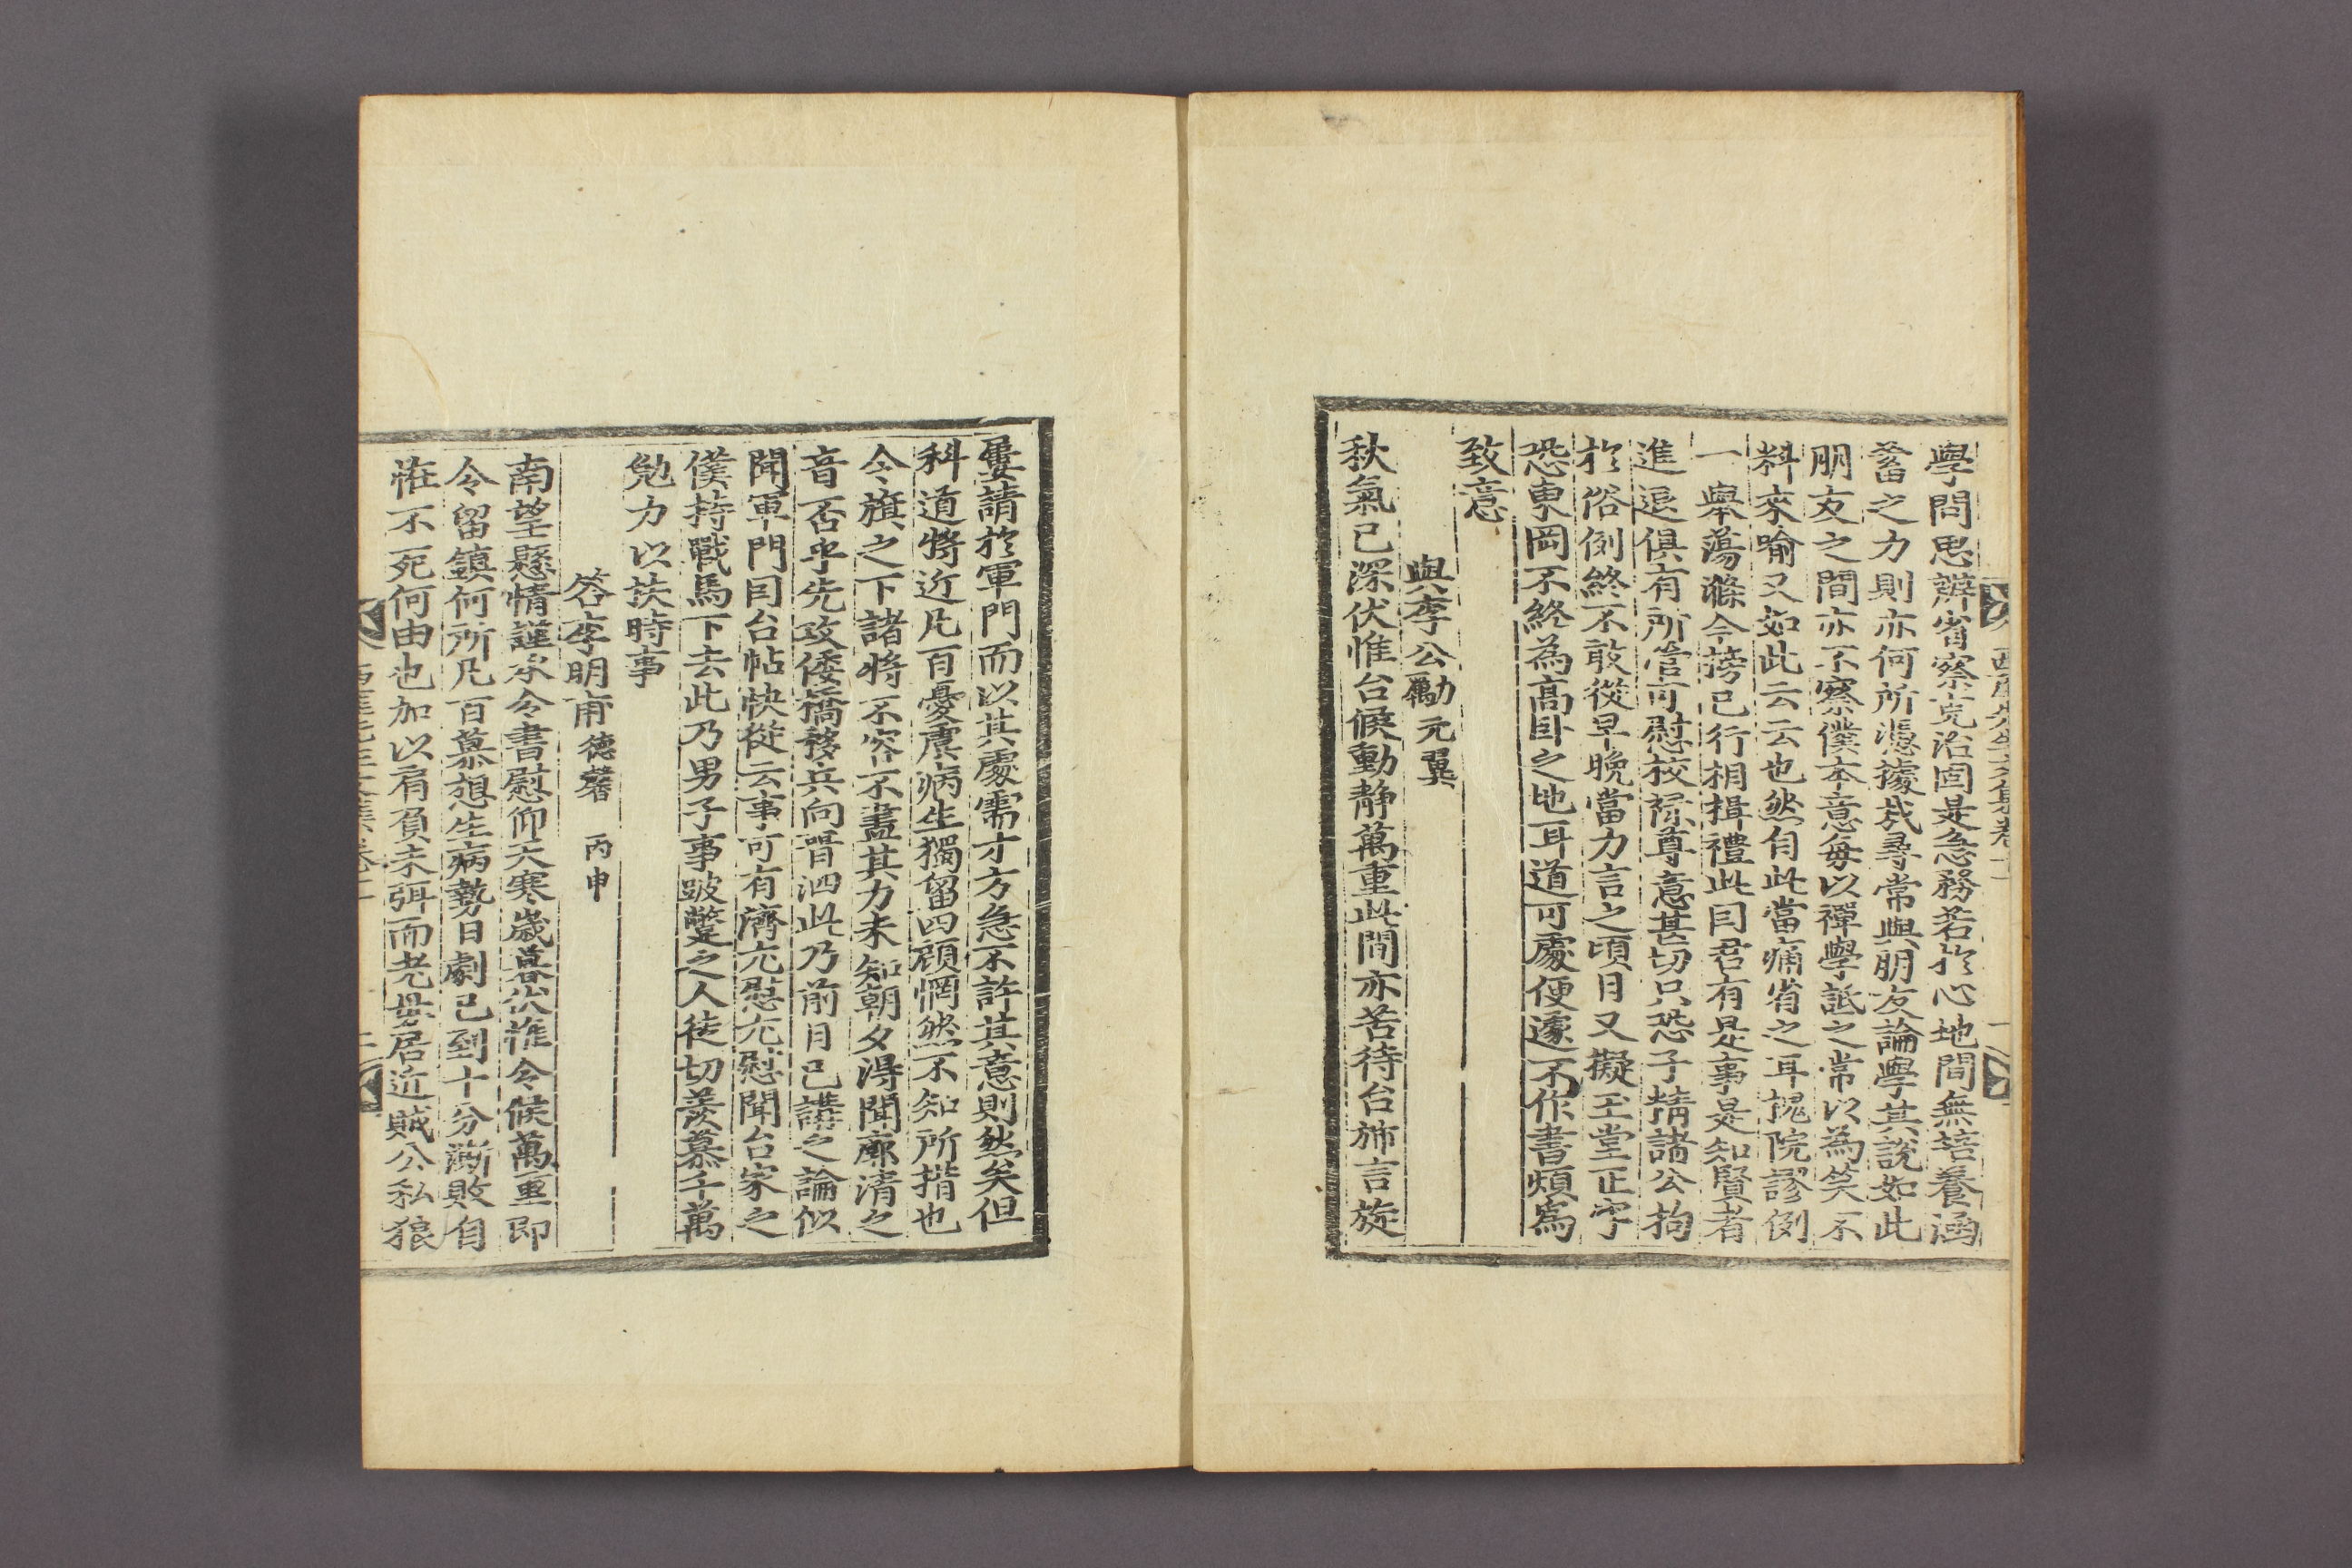 學問思辨省察克治固是急務若於心地間無培養涵
蓄之力則亦何所憑據哉尋常與朋友論學其說如此
朋友之間亦不察僕本意每以禪學詆之常以為笑不
料來喻又如此云云也然自此當痛省之耳槐院謬例
一舉蕩滌今榜已行相揖禮此因君有是事是知賢者
進退俱有所管可慰校稼尊意甚切只恐子精諸公拘
於俗例終不敢從早晚當力言之頃日又擬玉堂正字
恐東岡不終為高臥之地耳道可處便遽不作書煩為
致意
與李公勵元翼
秋氣已深伏惟台候動靜萬重此間亦苦待台旆言旋
屢請於軍門而以其處需才方急不許其意則然矣但
科道將近凡百憂虞病生獨留四顧惘然不知所措也
令旗之下諸將不容不盡其力未知朝夕得聞廓清之
音否乎先攻倭橋移兵向晋泗此乃前月已講之論似
聞軍門因台帖快從云事可有濟尤慰尤慰聞台家之
僕持戰馬下去此乃男子事跛躄之人徒切羨慕千萬
勉力以扶時事
答李明甫德馨 丙申
南望懸情謹承令書慰仰大寒歲暮伏惟令候萬重即
令留鎭何所凡百慕想生病勢日劇已到十分澌敗自
恠不死何由也加以肩負未弭而老母居近賊公私狼